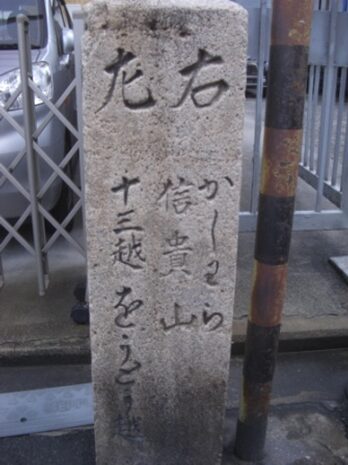 右
かしわら
信貴山
左
十三越 をうとう越